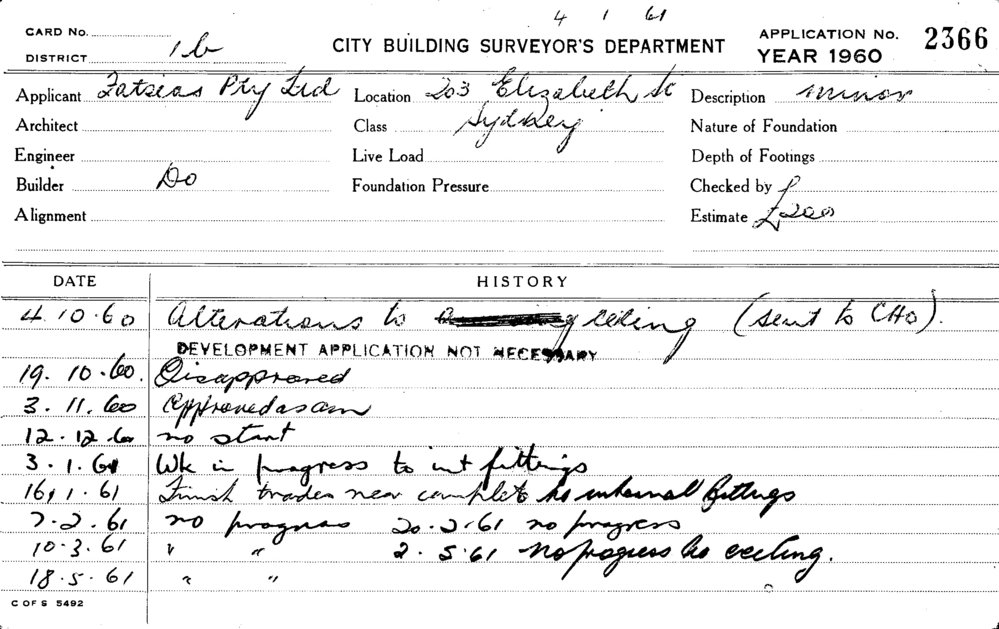 4 1 61
CARD No.
DISTRICT 1b
CITY BUILDING SURVEYOR'S DEPARTMENT
APPLICATION No. 2366
YEAR 1960
Applicant Fatseas Pty Ltd
Location 203 Elizabeth St
Description minor
Architect
Class Sydney
Nature of Foundation
Engineer
Live Load
Depth of Footings
Builder Do
Foundation Pressure
Checked by
Alignment
Estimate £200
DATE HISTORY
4.10.60 Alterations to ceiling (sent to CHO).
DEVELOPMENT APPLICATION NOT NECESSARY
19.10.60. Disapproved
3.11.60 Approved as am
12.12.60 no start
3.1.61 Wk in progress to int fittings
16.1.61 Finish trades near complete to internal fittings
7.2.61 no progress 20.2.61 no progress
10.3.61 " " 2.5.61 No progress to ceiling.
18.5.61 " "
C OF S 5492